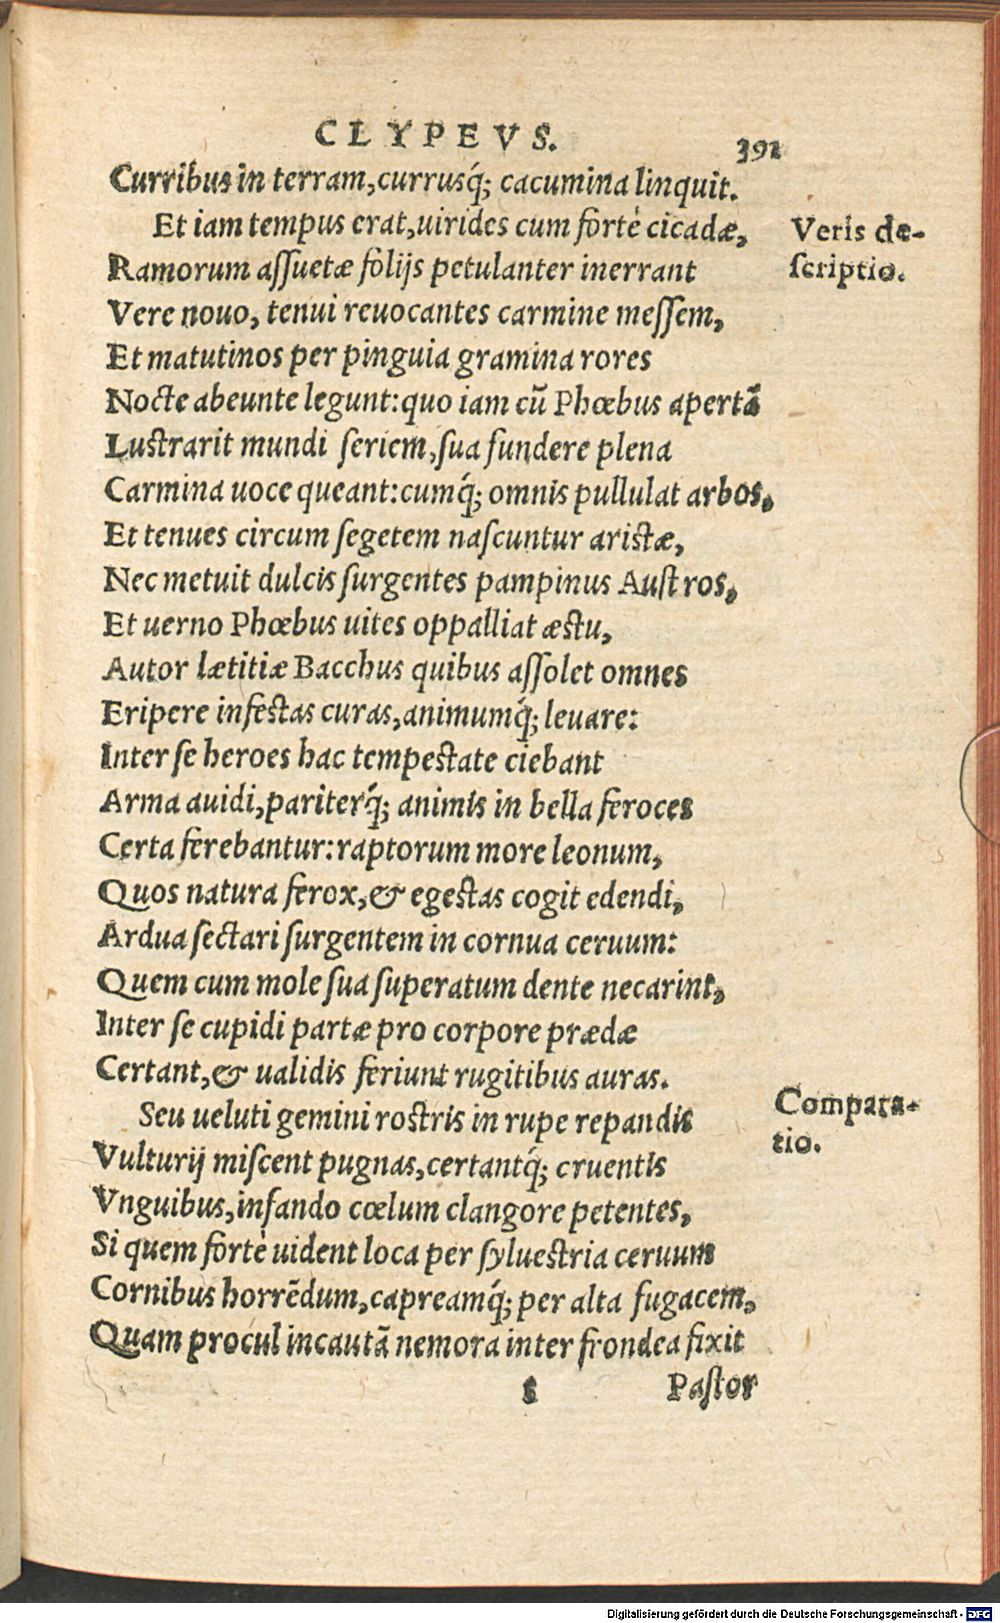 CLYPEVS.
391
Curribus in terram, currusq́; cacumina linquit.
Et iam tempus erat, uirides cum fortè cicadæ,
Veris de-
Ramorum aſſuetæ folijs petulanter inerrant
ſcriptio.
Vere nouo, tenui reuocantes carmine meſſem,
Et matutinos per pinguia gramina rores
Nocte abeunte legunt: quo iam cũ Phœbus apertã
Lustrarit mundi ſeriem, ſua fundere plena
Carmina uoce queant: cumq́; omnis pullulat arbos,
Et tenues circum ſegetem naſcuntur aristæ,
Nec metuit dulcis ſurgentes pampinus Auſtros,
Et uerno Phœbus uites oppalliat æſtu,
Autor lætitiæ Bacchus quibus aſſolet omnes
Eripere infestas curas, animumq́; leuare:
Inter ſe heroes hac tempestate ciebant
Arma auidi, pariterq́; animis in bella feroces
Certa ferebantur: raptorum more leonum,
Quos natura ferox, & egestas cogit edendi,
Ardua ſectari ſurgentem in cornua ceruum:
Quem cum mole ſua ſuperatum dente necarint,
Inter ſe cupidi partæ pro corpore prædæ
Certant, & ualidis feriunt rugitibus auras.
Seu ueluti gemini rostris in rupe repandis
Compara-
Vulturij miſcent pugnas, certantq́; cruentis
tio.
Vnguibus, infando cœlum clangore petentes,
Si quem fortè uident loca per ſylueſtria ceruum
Cornibus horrẽdum, capreamq́; per alta fugacem,
Quam procul incautã nemora inter frondea fixit
s
Paſtor
Digitalisierung gefördert durch die Deutsche Forschungsgemeinschaft - DFG